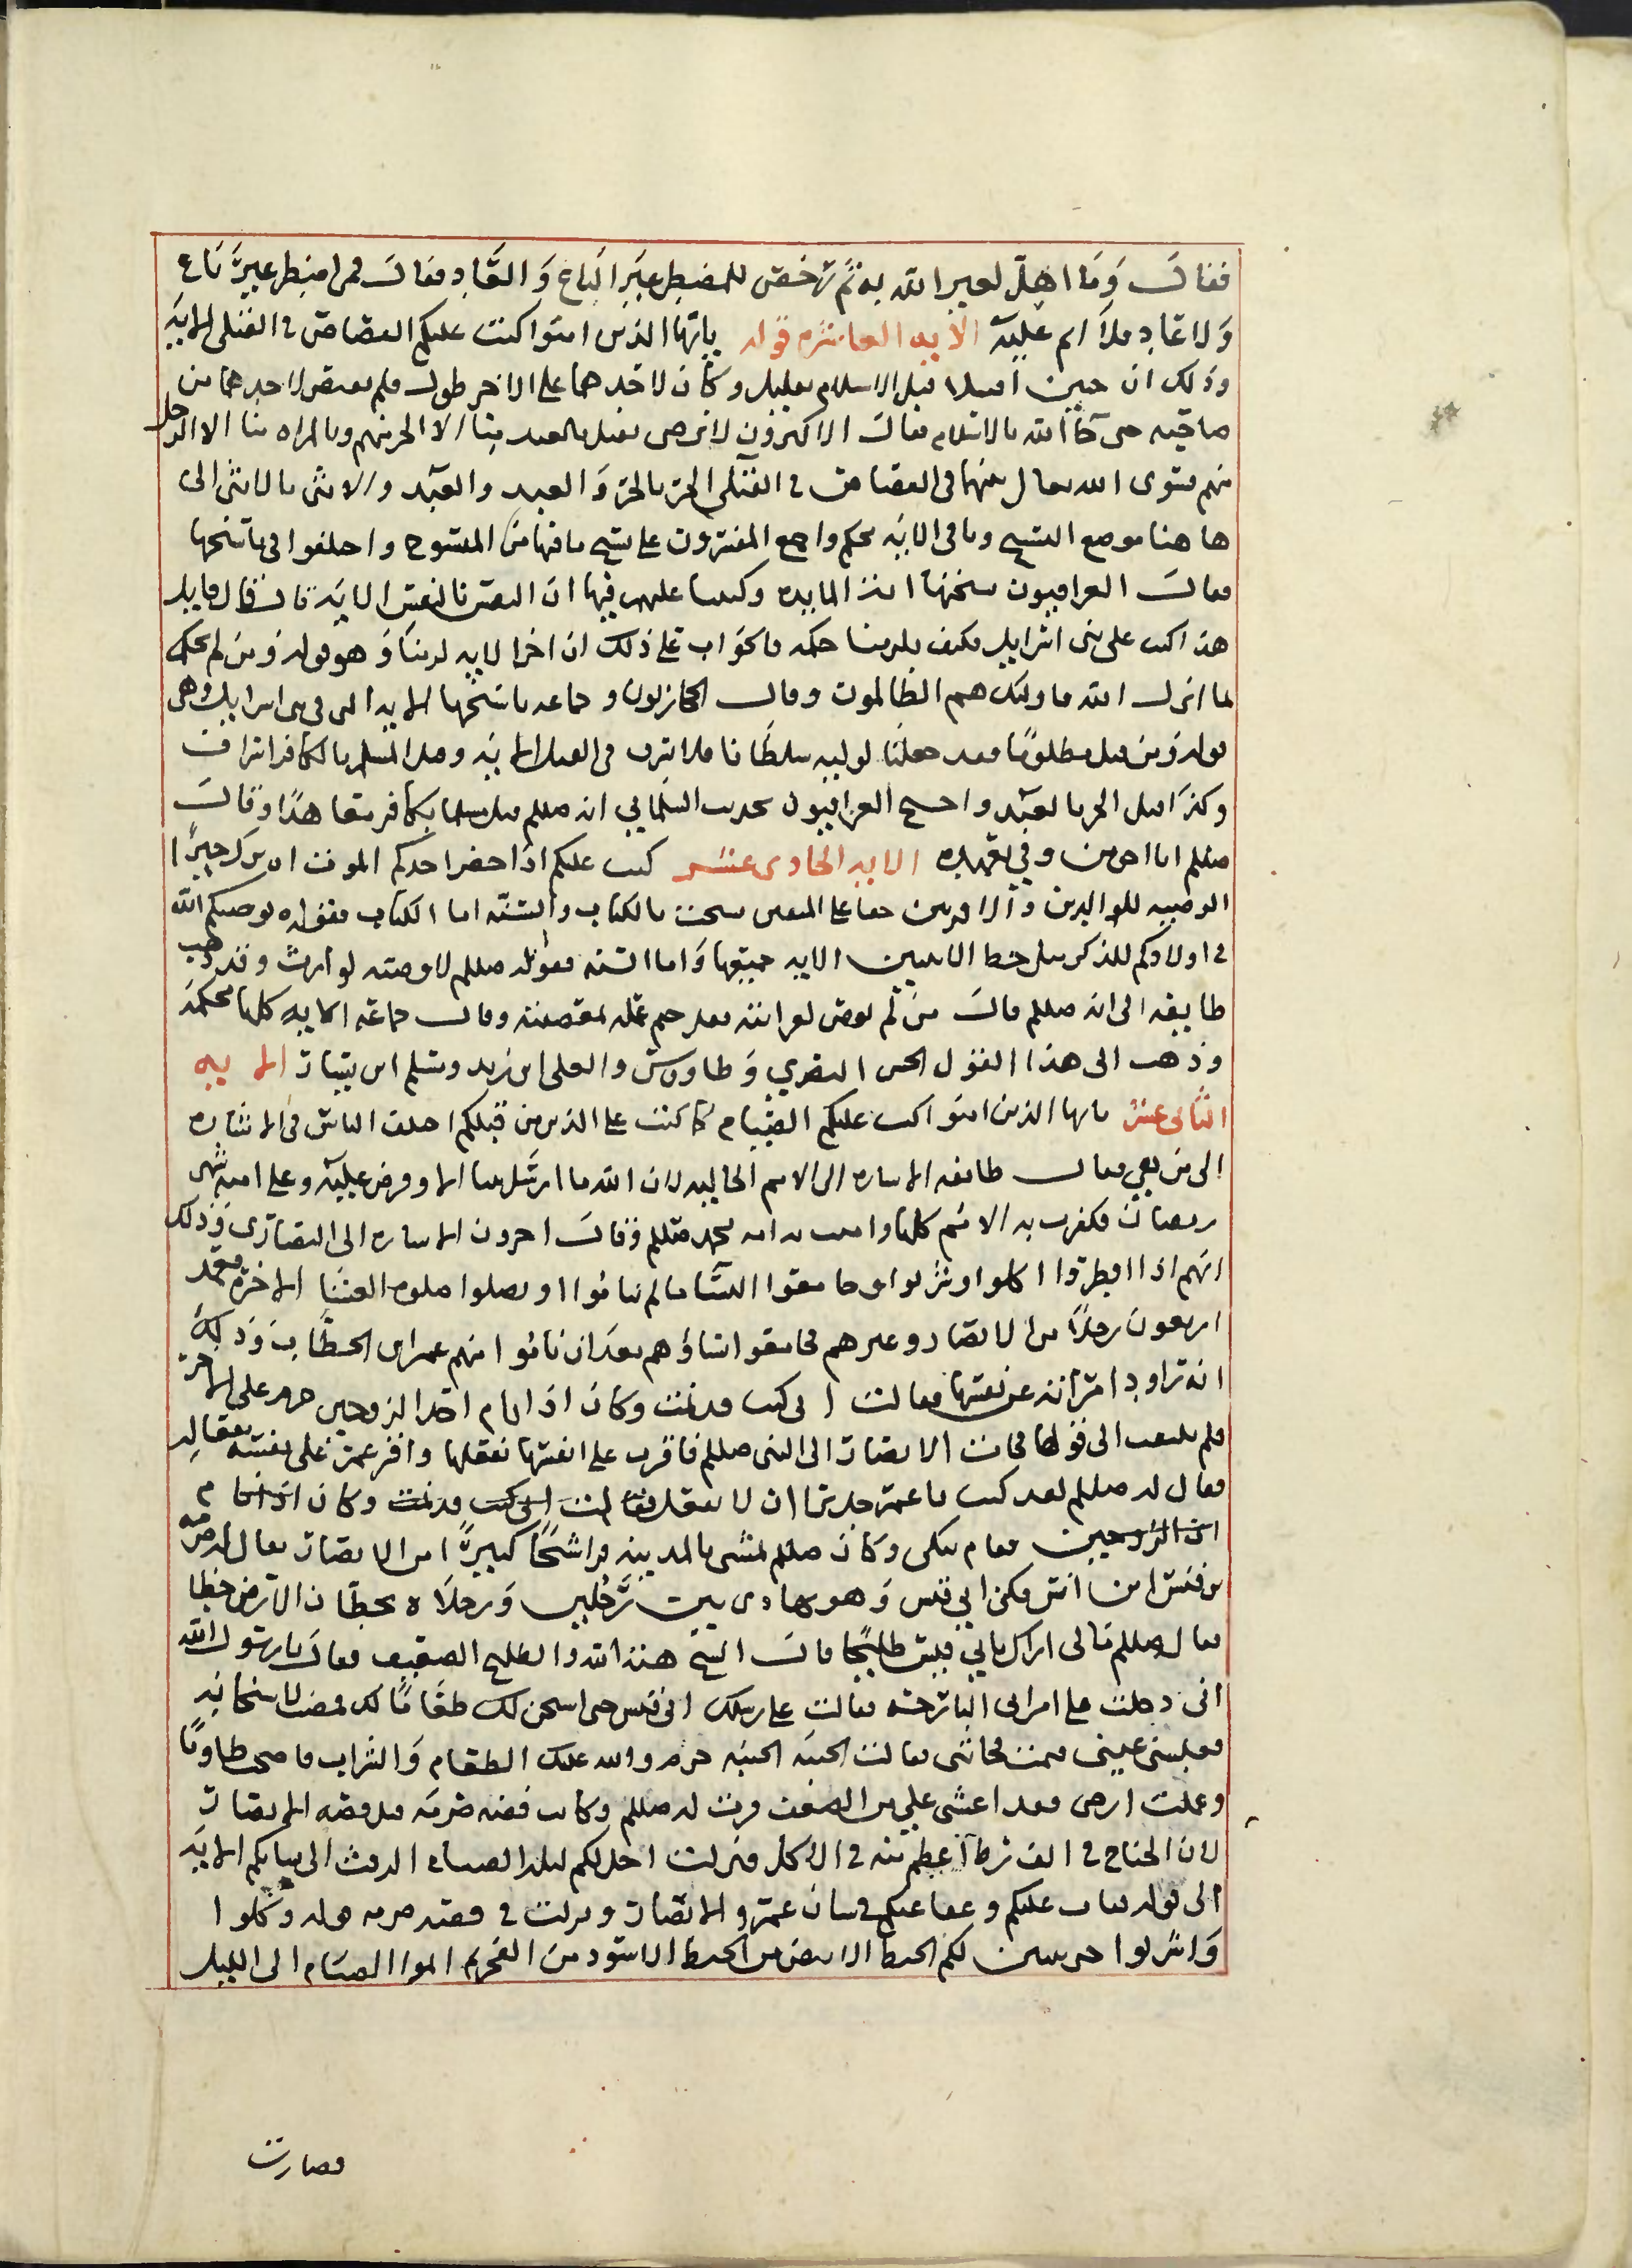 فقال وما اهل لغير الله به ثم رخص للمضطر غير الباغ والعاد فقال فمن اضطر غير باغ
ولا عاد فلا اثم عليه الآيه العاشره قوله يايها الذين امنوا كتب عليكم القصاص في القتلى الايه
وذلك ان حيين اقتتلا قبل الاسلام بقليل وكان لاحدهما على الاخر طول فلم يقتص لاحدهما من
صاحبه حتى جآ الله بالاسلام فقال الاكثرون لا نرضى بقتل العبد منا الا الحر منهم وبالمراه منا الا الرجل
منهم فسوى الله تعالى بينهما في القصاص في القتلى الحر بالحر والعبد والعبد والانثى بالانثى الى
ها هنا موضع النسخ وباقي الايه محكم واجمع المفسرون على نسخ ما فيها من المنسوخ واختلفوا في ناسخها
فقال العراقيون نسختها ايه المايده وكتبنا عليهم فيها ان النفس بالنفس الايه فان قال قايل
هذا كتب على بني اسرايل فكيف يلزمنا حكمه فالجواب على ذلك ان اخر الايه لزمنا وهو قوله ومن لم يحكم
بما انزل الله فاوليك هم الظالمون وقال الحجازيون وجماعه ناسخها الايه التي في بني اسرايل وهي
قوله ومن قتل مظلوما فقد جعلنا لوليه سلطانا فلا يسرف في القتل الايه وقتل المسلم بالكافر اسراف
وكذا قتل الحر بالعبد واحتج العراقيون بحديث السلماني ان صللم قتل مسلما بكافر معاهدا وقال
صللم انا احق من وفي بعهده الايه الحادى عشر كتب عليكم اذا حضر احدكم الموت ان ترك خيرا
الوصيه للوالدين والاقربين حقا على المتقين نسخت بالكتاب والسنه اما الكتاب فقوله يوصيكم الله
في اولادكم للذكر مثل حظ الانثيين الايه جميعها واما السنه فقوله صللم لا وصيه لوارث وقد ذهب
طايفه الى انه صللم قال من لم يوص لقرابته فقد ختم عمله بمعصيته وقال جماعه الايه كلها محكمه
وذهب الى هذا القول الحسن البصري وطاوس والعلى ابن زيد ومسلم ابن يسار الايه
الثانى عشر يايها الذين امنوا كتب عليكم الصيام كما كتب على الذين من قبلكم اختلف الناس في الاشاره
الى من هي فقال طايفه الاشاره الى الامم الخاليه لان الله ما ارسل نبيا الا وفرض عليه وعلى امته شهر
رمضان فكفرت به الامم كلها وامنت به امه محمد صللم وقال اخرون الاشاره الى النصارى وذلك
انهم اذا افطروا اكلوا وشربوا وجامعوا النسا ما لم يناموا او يصلوا صلوه العشا الاخره فعمد
اربعون رجلا من الانصار وغيرهم فجامعوا نساؤهم بعد ان ناموا منهم عمر ابن الخطاب وذلك
انه تراود امراته عن نفسها فقالت اني كنت قد نمت وكان اذا نام احد الزوجين حرم على الاخر
فلم يلتفت الى قولها فجات الانصار الى النبي صللم فاقرت على انفسها بفعلها واقر عمر على نفسه بفعاله
فقال له صللم لقد كنت يا عمر جديرا ان لا تفعل فقالت اني كنت قد نمت وكان اذا نام
احد الزوجين فقام يبكي وكان صللم يمشي بالمدينه فرا شيخا كبيرا من الانصار يقال له صرمه
بن قيس ابن انس فكنى ابي قيس وهو يهادى بين رجلين ورجلاه يخطان الارض خطا
فقال صللم ما لي اراك يابي قيس طليحا قال الشيخ هبة الله والطليح الضعيف فقال يا رسول الله
اني دخلت على امراتي البارحه فقالت على رسلك ابي قيس حتى اسخن لك طعاما لك فمضت لاسخانه
فغلبتني عيني فنمت فجاتني فقالت الخيبه الخيبه حرم والله عليك الطعام والشراب فاصبحت طاويا
وعملت ارضي فقد اغشي علي من الضعف فرق له صللم وكانت قصه صرمه قبل قصه الانصار
لان الجناح في الف شرط اعظم منه في الاكل فنزلت احل لكم ليله الصيام الرفث الى نسايكم الايه
الى قوله فتاب عليكم وعفا عنكم في شان عمر والانصار ونزلت في قصه صرمه قوله وكلوا
واشربوا حتى يتبين لكم الخيط الابيض من الخيط الاسود من الفجر ثم اتموا الصيام الى الليل
فصارت